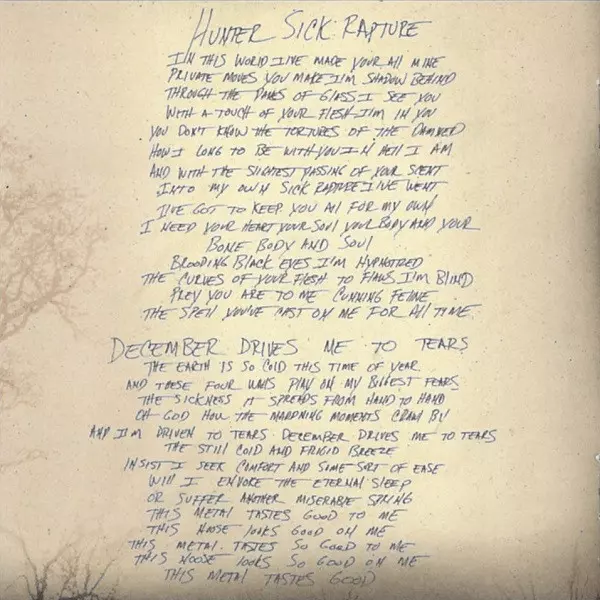 HUNTER SICK RAPTURE
IN THIS WORLD I'VE MADE YOUR ALL MINE
PRIVATE MOVES YOU MAKE I'M SHADOW BEHIND
THROUGH THE PANES OF GLASS I SEE YOU
WITH A TOUCH OF YOUR FLESH I'M IN YOU
YOU DON'T KNOW THE TORTURES OF THE DAMNED
HOW I LONG TO BE WITH YOU IN HELL I AM
AND WITH THE SLIGHTEST PASSING OF YOUR SCENT
INTO MY OWN SICK RAPTURE I'VE WENT
I'VE GOT TO KEEP YOU ALL FOR MY OWN
I NEED YOUR HEART YOUR SOUL YOUR BODY AND YOUR
BONE BODY AND SOUL
BROODING BLACK EYES I'M HYPNOTIZED
THE CURVES OF YOUR FLESH TO FLAWS I'M BLIND
PREY YOU ARE TO ME CUNNING FELINE
THE SPELL YOU'VE CAST ON ME FOR ALL TIME
DECEMBER DRIVES ME TO TEARS
THE EARTH IS SO COLD THIS TIME OF YEAR
AND THESE FOUR WALLS PLAY ON MY BIGGEST FEARS
THE SICKNESS IT SPREADS FROM HAND TO HAND
OH GOD HOW THE MORNING MOMENTS CRAWL BY
AND I'M DRIVEN TO TEARS DECEMBER DRIVES ME TO TEARS
THE STILL COLD AND FRIGID BREEZE
INSIST I SEEK COMFORT AND SOME SORT OF EASE
WILL I ENVOKE THE ETERNAL SLEEP
OR SUFFER ANOTHER MISERABLE SPRING
THIS METAL TASTES GOOD TO ME
THIS NOOSE LOOKS GOOD ON ME
THIS METAL TASTES SO GOOD TO ME
THIS NOOSE LOOKS SO GOOD ON ME
THIS METAL TASTES GOOD